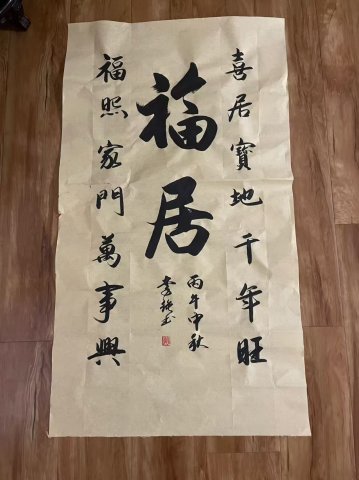 喜居寶地千年旺
福居
福照家門萬事興
丙午中秋